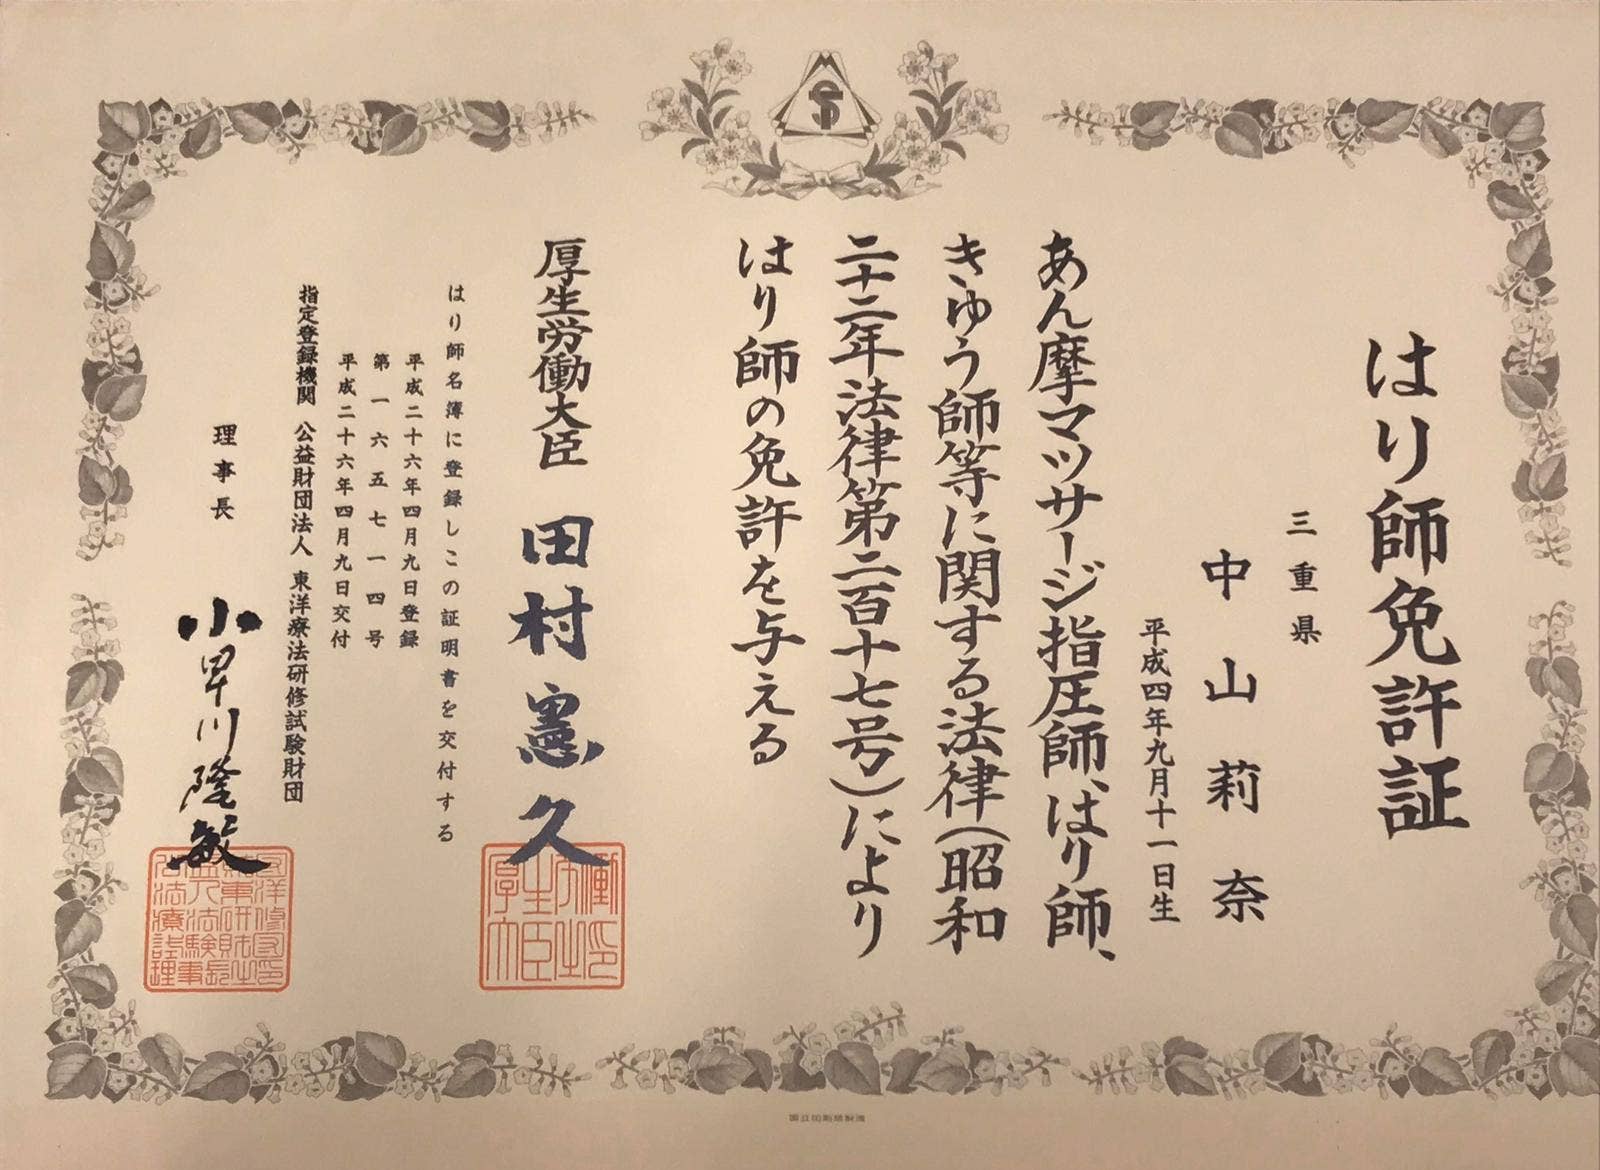 はり師免許証
三重県
中山莉奈
平成四年九月十一日生
あん摩マッサージ指圧師、はり師、
きゆう師等に関する法律(昭和
二十二年法律第二百十七号)により
はり師の免許を与える
厚生労働大臣 田村憲久
はり師名簿に登録しこの証明書を交付する
平成二十六年四月九日登録
第一六五七一四号
平成二十六年四月九日交付
指定登録機関 公益財団法人 東洋療法研修試験財団
理事長 小早川隆敏